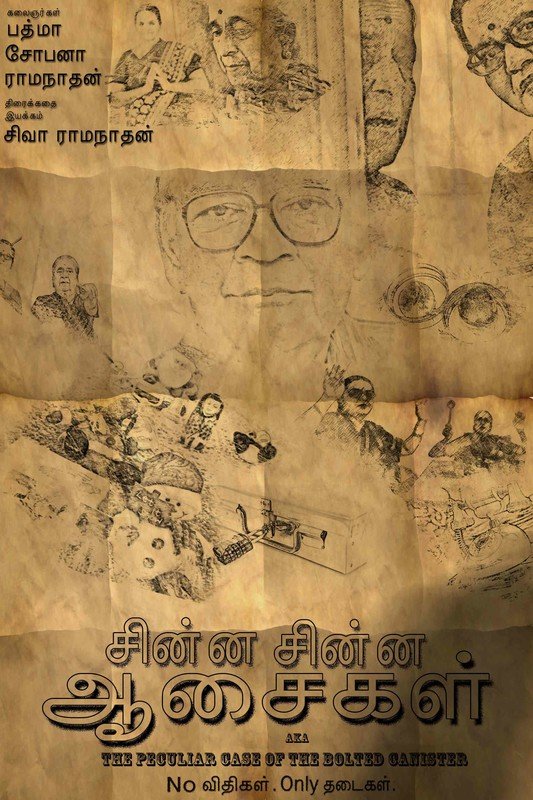 கலைஞர்கள்
பத்மா
சோபனா
ராமநாதன்
திரைக்கதை
இயக்கம்
சிவா ராமநாதன்
சின்ன சின்ன
ஆசைகள்
AKA
THE PECULIAR CASE OF THE BOLTED CANISTER
No விதிகள். Only தடைகள்.